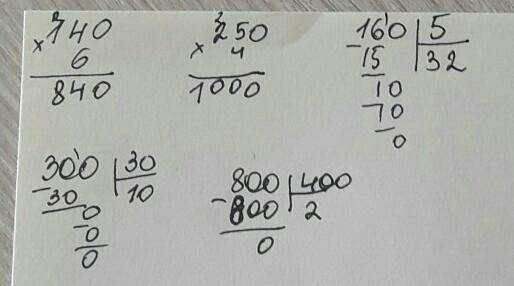 140
× 6
840
250
× 4
1000
160 | 5
- 15 | 32
10
- 10
0
300 | 30
- 30 | 10
0
- 0
0
800 | 400
- 800 | 2
0